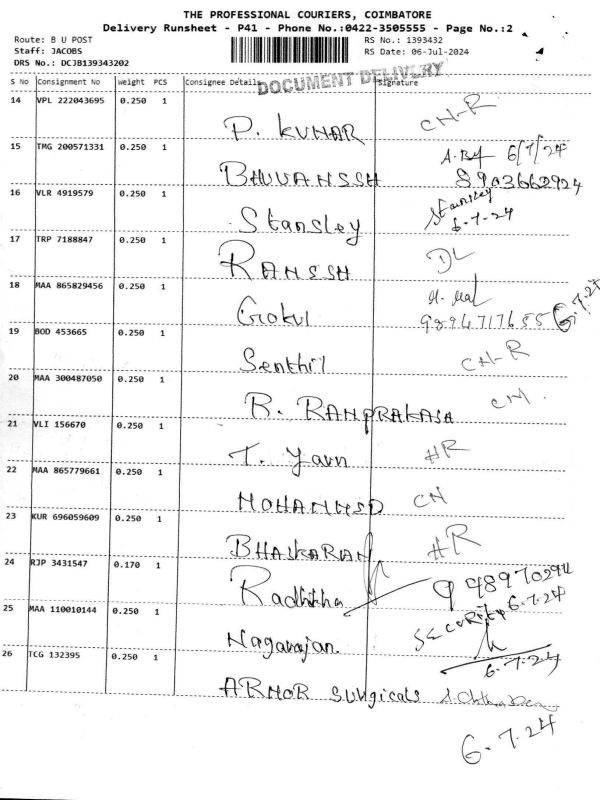 THE PROFESSIONAL COURIERS, COIMBATORE
Delivery Runsheet - P41 - Phone No.:0422-3505555 - Page No.:2
Route: B U POST
RS No.: 1393432
Staff: JACOBS
RS Date: 06-Jul-2024
DRS No.: DCJB139343202
DOCUMENT DELIVERY
S No Consignment No Weight PCS Consignee Details Signature
14 VPL 222043695 0.250 1
P. KUMAR CN-R
15 TMG 200571331 0.250 1
BHUVANESSH 6/7/24
8903662924
16 VLR 4919579 0.250 1
Stansley Stansley
6-7-24
17 TRP 7188847 0.250 1
RANSSH DL
18 MAA 865829456 0.250 1
Gokul
9894717655 6.7.24
19 BOD 453665 0.250 1
Senthil CN-R
20 MAA 300487050 0.250 1
R. RAMPRAKASH CN
21 VLI 156670 0.250 1
T. HR
22 MAA 865779661 0.250 1
MOHAMMED CN
23 KUR 696059609 0.250 1
BHASKARAN HR
24 RJP 3431547 0.170 1
Radhikha
25 MAA 110010144 0.250 1
SECURITY 6.7.24
Nagarajan
6.7.24
26 TCG 132395 0.250 1
ARMOR SURGICALS
6.7.24